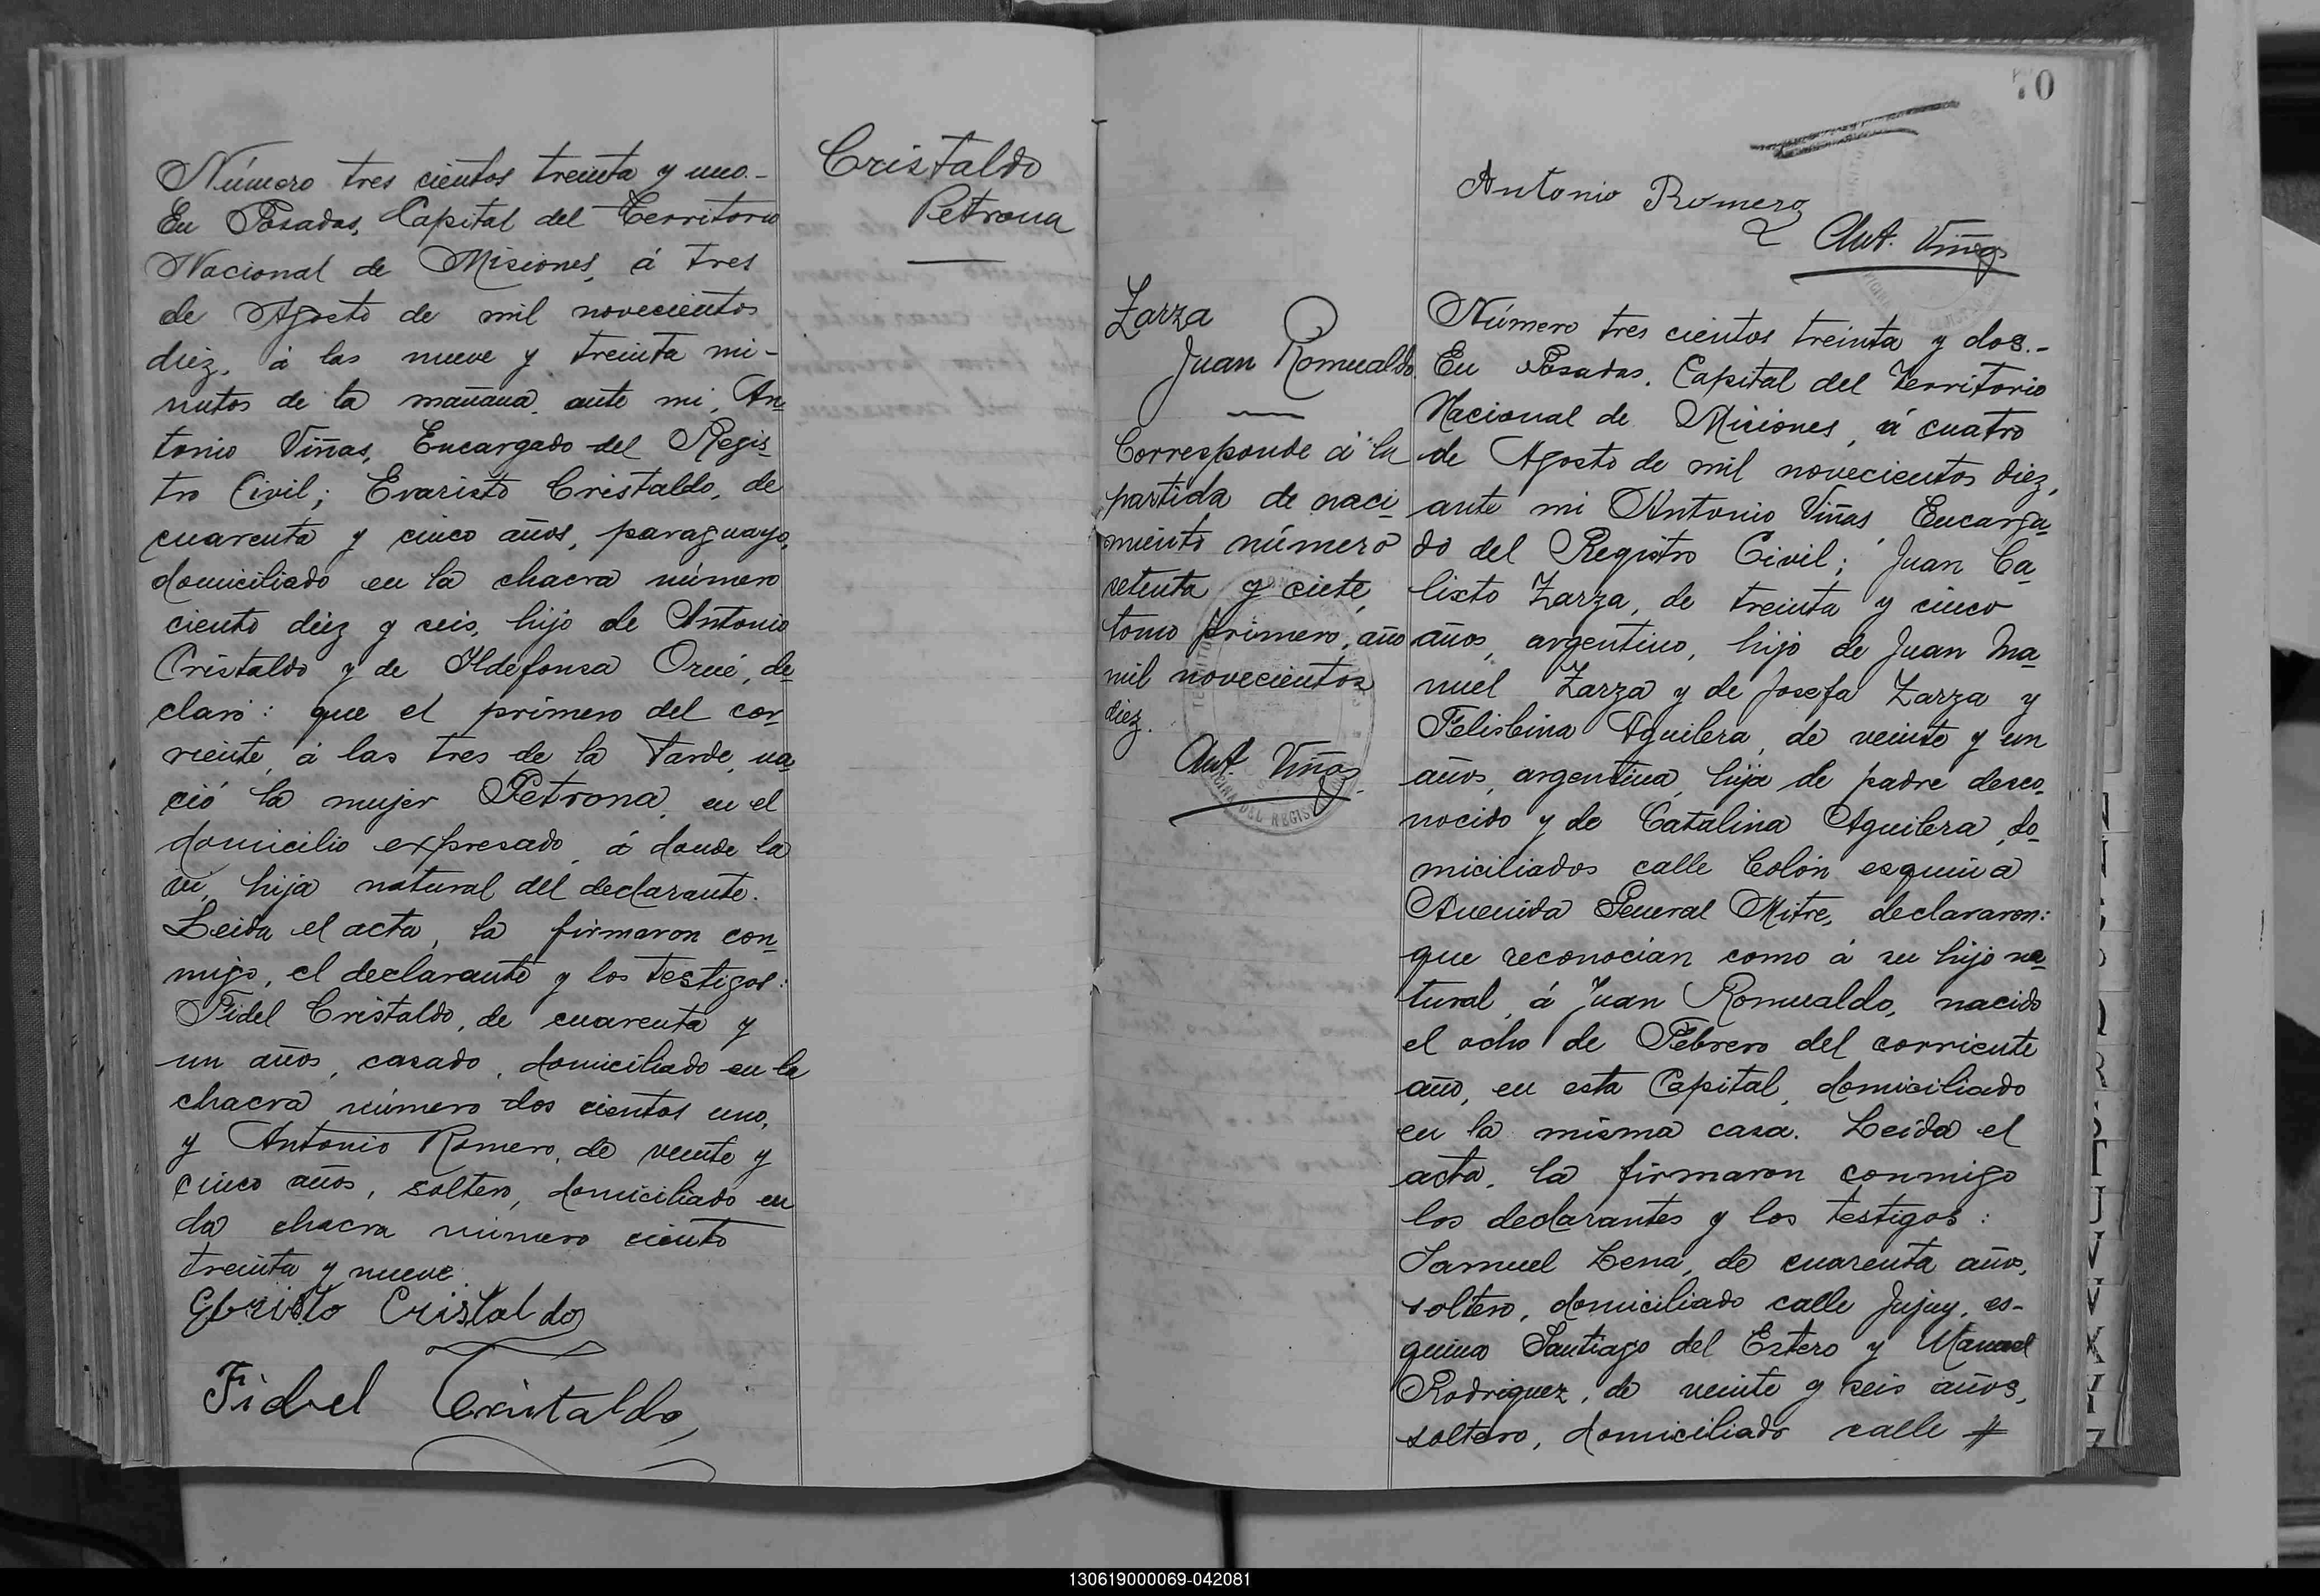 Número tres cientos treinta y uno.-
En Posadas, Capital del Territorio
Nacional de Misiones, á tres
de Agosto de mil novecientos
diez, á las nueve y treinta mi-
nutos de la mañana, ante mi, An-
tonio Viñas, Encargado del Regis-
tro Civil; Evaristo Cristaldo, de
cuarenta y cinco años, paraguayo,
domiciliado en la chacra número
ciento diez y seis, hijo de Antonio
Cristaldo y de Ildefonsa Orué, de-
claró: que el primero del cor-
riente, á las tres de la tarde, na-
ció la mujer Petrona, en el
domicilio expresado, á donde la
ví, hija natural del declarante.
Leida el acta, la firmaron con-
migo, el declarante y los testigos:
Fidel Cristaldo, de cuarenta y
un años, casado, domiciliado en la
chacra número dos cientos uno,
y Antonio Romero, de veinte y
cinco años, soltero, domiciliado en
la chacra número ciento
treinta y nueve.
Cristaldo
Fidel Cristaldo
Cristaldo
Petrona
70
Antonio Romero
Ant. Viñas
Zarza
Juan Romualdo
Corresponde á la
partida de naci-
miento número
setenta y siete,
tomo primero, año
mil novecientos
diez.
Ant. Viñas
Número tres cientos treinta y dos.-
En Posadas, Capital del Territorio
Nacional de Misiones, á cuatro
de Agosto de mil novecientos diez,
ante mi Antonio Viñas, Encarga-
do del Registro Civil; Juan Ca-
lixto Zarza, de treinta y cinco
años, argentino, hijo de Juan Ma-
nuel Zarza y de Josefa Zarza y
Felisbina Aguilera, de veinte y un
años, argentina, hija de padre desco-
nocido y de Catalina Aguilera, do-
miciliados calle Colón esquina
Avenida General Mitre, declararon:
que reconocían como á su hijo na-
tural, á Juan Romualdo, nacido
el ocho de Febrero del corriente
año, en esta Capital, domiciliado
en la misma casa. Leída el
acta, la firmaron conmigo
los declarantes y los testigos:
Samuel Lena, de cuarenta años,
soltero, domiciliado calle Jujuy, es-
quina Santiago del Estero y Manuel
Rodriguez, de veinte y seis años,
soltero, domiciliado calle #
130619000069-042081